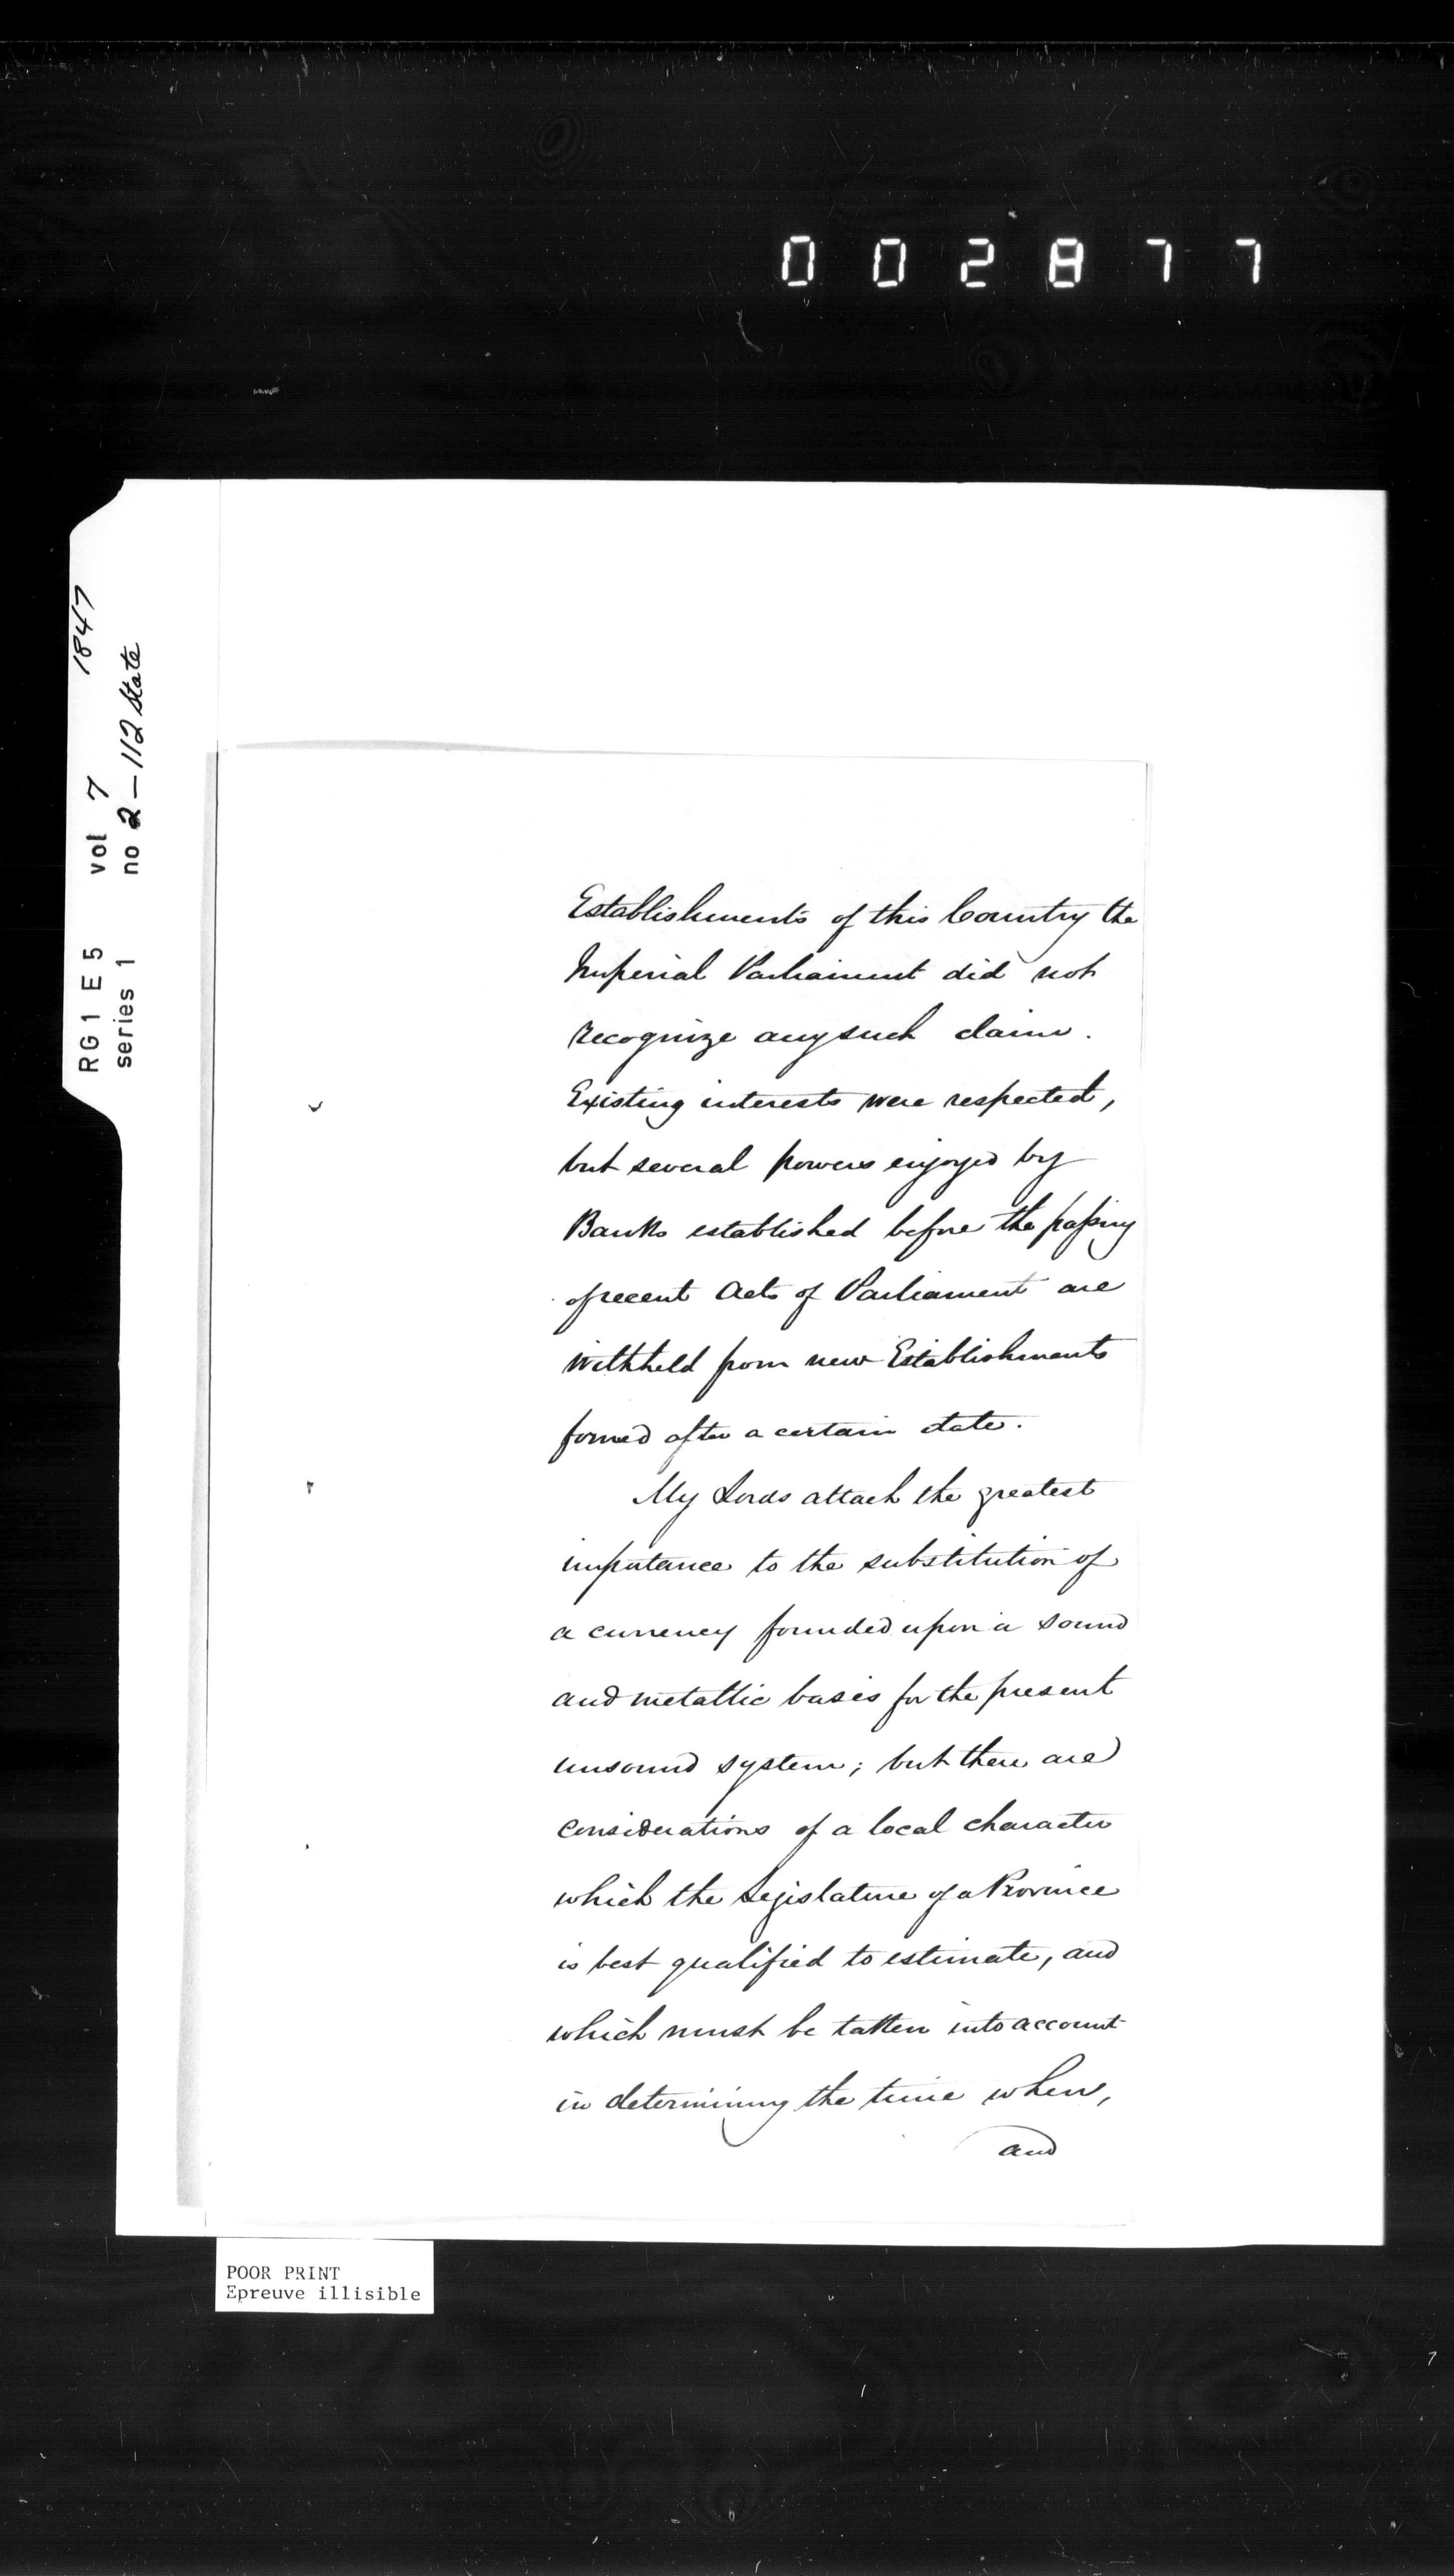 002877
RG1 E5 vol 7 1847
series 1 no 2 — 112 State
Establishments of this Country the
Imperial Parliament did not
recognize any such claim.
Existing interests were respected,
but several powers enjoyed by
Banks established before the passing
of recent Acts of Parliament are
withheld from new Establishments
formed after a certain date.
My Lords attach the greatest
importance to the substitution of
a currency founded upon a sound
and metallic basis for the present
unsound system; but there are
considerations of a local character
which the Legislature of a Province
is best qualified to estimate, and
which must be taken into account
in determining the time when,
and
POOR PRINT
Epreuve illisible